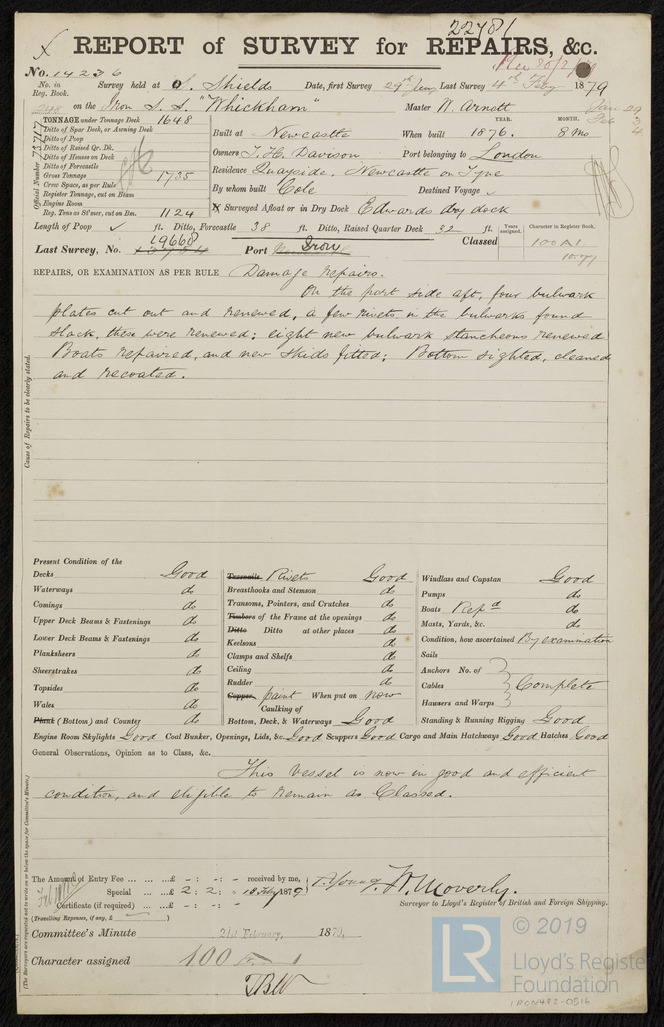 22481
REPORT of SURVEY for REPAIRS, &c.
No. 14236 Survey held at S. Shields Date, first Survey 29th Jany Last Survey 4th Feby 1879
No. in Reg. Book.
248 on the Iron S. S. "Whickham" Master W. Arnett
TONNAGE under Tonnage Deck 1648
Ditto of Spar Deck, or Awning Deck
Ditto of Poop
Ditto of Raised Qr. Dk.
Ditto of Houses on Deck
Ditto of Forecastle
Gross Tonnage 1735
Crew Space, as per Rule
Register Tonnage, cut on Beam
Engine Room
Reg. Tons as 8d'mer, cut on Bm. 1124
Official Number 73717
YEAR. MONTH.
Built at Newcastle When built 1876. 8 Mo
Owners T. H. Davison Port belonging to London
Residence Quayside, Newcastle on Tyne
By whom built Cole Destined Voyage
Surveyed Afloat or in Dry Dock Edwards dry dock
Length of Poop ft. Ditto, Forecastle 38 ft. Ditto, Raised Quarter Deck 32 ft.
Last Survey, No. 19668 Port Iron Classed
Years assigned. Character in Register Book.
100A1
10.77
REPAIRS, OR EXAMINATION AS PER RULE Damage repairs.
On the port side aft, four bulwark
plates cut out and renewed, a few rivets in the bulwarks found
slack, these were renewed; eight new bulwark stancheons renewed
Boats repaired, and new skids fitted; Bottom sighted, cleaned
and recoated.
Cause of Repairs to be clearly stated.
Present Condition of the
Decks Good
Waterways do
Comings do
Upper Deck Beams & Fastenings do
Lower Deck Beams & Fastenings do
Planksheers do
Sheerstrakes do
Topsides do
Wales do
Plank (Bottom) and Counter do
Treenails Rivets Good
Breasthooks and Stemson do
Transoms, Pointers, and Crutches do
Timbers of the Frame at the openings do
Ditto Ditto at other places do
Keelsons do
Clamps and Shelfs do
Ceiling do
Rudder do
Copper, paint When put on now
Caulking of
Bottom, Deck, & Waterways Good
Windlass and Capstan Good
Pumps do
Boats Repd do
Masts, Yards, &c. do
Condition, how ascertained By examination
Sails
Anchors No. of
Cables Complete
Hawsers and Warps
Standing & Running Rigging Good
Engine Room Skylights Good Coal Bunker, Openings, Lids, &c. Good Scuppers Good Cargo and Main Hatchways Good Hatches Good
General Observations, Opinion as to Class, &c.
This vessel is now in good and efficient
condition, and eligible to remain as Classed.
(The Surveyors are requested not to write on or below the space for Committee's Minute.)
The Amount of Entry Fee ... ... ...£ - : - : - received by me,
Special ... ...£ 2 : 2 : - 18 Feby 1879
Certificate (if required) ... ...£ - : - : -
(Travelling Expenses, if any, £ )
T. Young. W. Moverly.
Surveyor to Lloyd's Register of British and Foreign Shipping.
Committee's Minute 21st February, 1879.
Character assigned 100 A 1
TBW
LR
© 2019
Lloyd's Register
Foundation
IRON482-0516